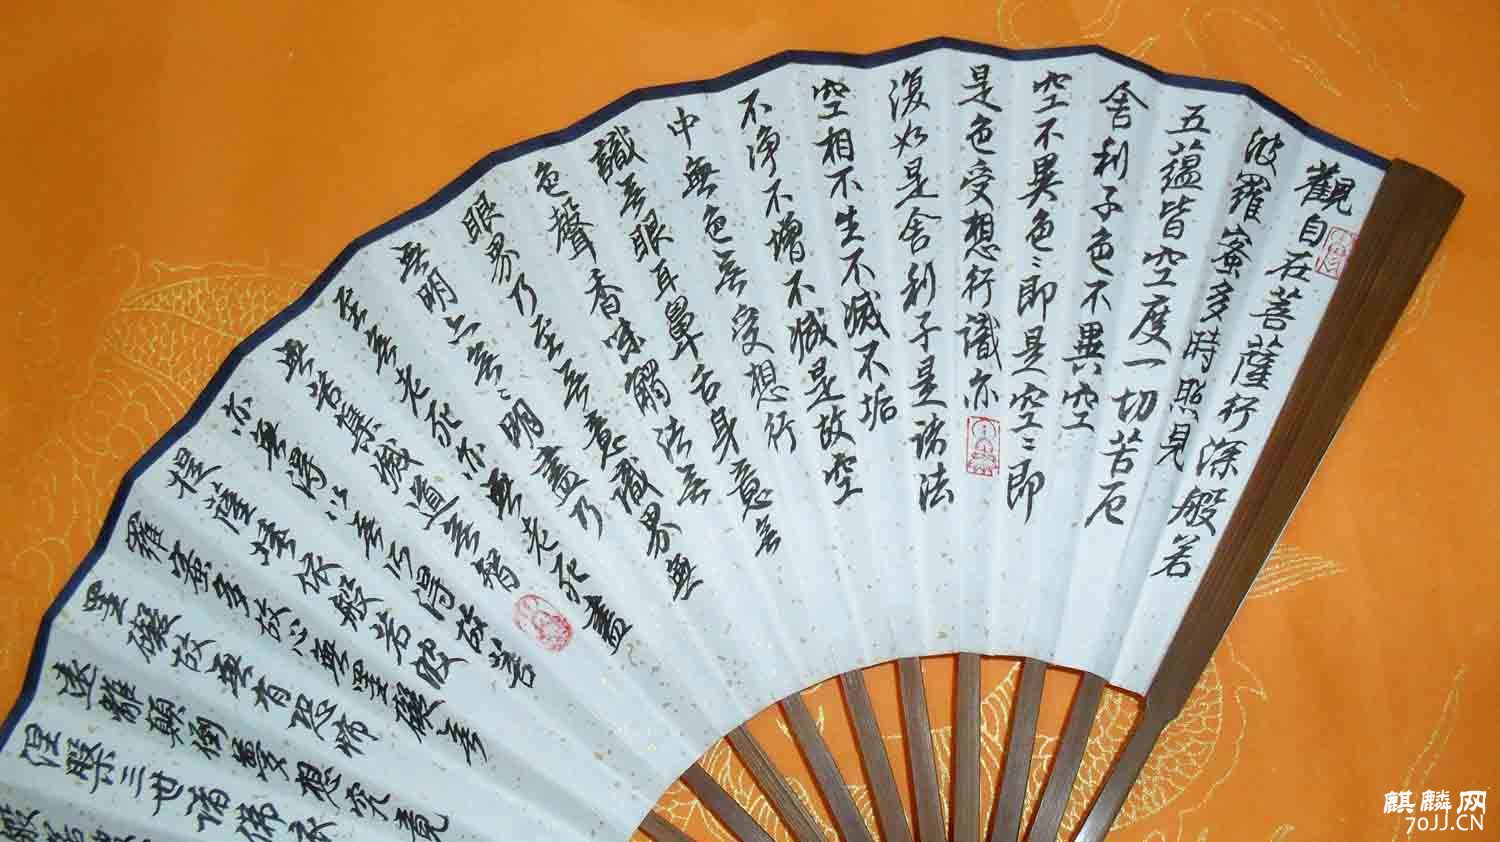 觀自在菩薩行深般若
波羅蜜多時照見
五蘊皆空度一切苦厄
舍利子色不異空
空不異色〻即是空〻即
是色受想行識亦
復如是舍利子是諸法
空相不生不滅不垢
不淨不增不減是故空
中無色無受想行
識無眼耳鼻舌身意無
色聲香味觸法無
眼界乃至無意識界無
無明亦無〻明盡乃
至無老死亦無老死盡
無苦集滅道無智
亦無得以無所得故菩
提薩埵依般若波
羅蜜多故心無罣礙無
罣礙故無有恐怖
遠離顛倒夢想究竟
涅槃三世諸佛依
般若
麒麟网
70JJ.CN